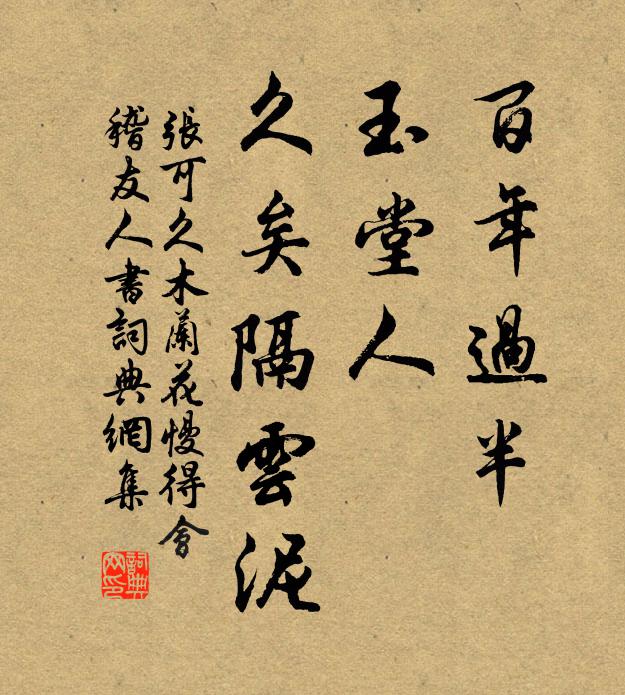 百年過半
玉堂人
久矣隔雲泥
張可久木蘭花慢得會
稽友人書詞典網集
詞典
网印